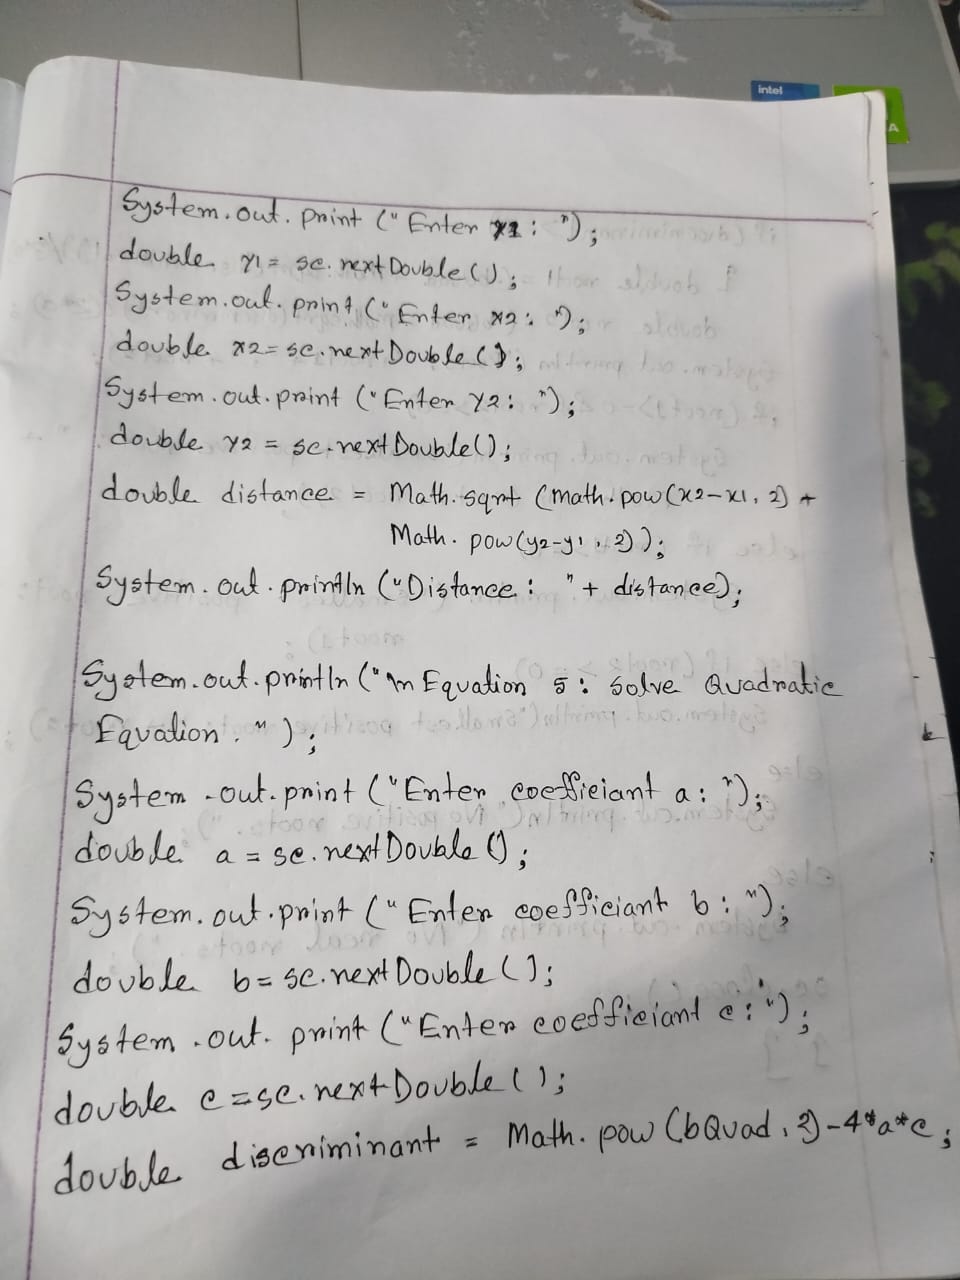 intel
A
System.out.print ("Enter x1: ");
double y1 = sc.nextDouble();
System.out.print ("Enter x2: ");
double x2 = sc.nextDouble();
System.out.print ("Enter y2: ");
double y2 = sc.nextDouble();
double distance = Math.sqrt (math.pow(x2-x1, 2) +
Math.pow(y2-y1, 2));
System.out.println ("Distance: " + distance);
System.out.println ("\n Equation 5: Solve Quadratic
Equation. ");
System.out.print ("Enter coefficiant a: ");
double a = sc.nextDouble();
System.out.print ("Enter coefficiant b: ");
double b = sc.nextDouble();
System.out.print ("Enter coefficiant c: ");
double c = sc.nextDouble();
double discriminant = Math.pow (bQuad, 2) - 4*a*c;